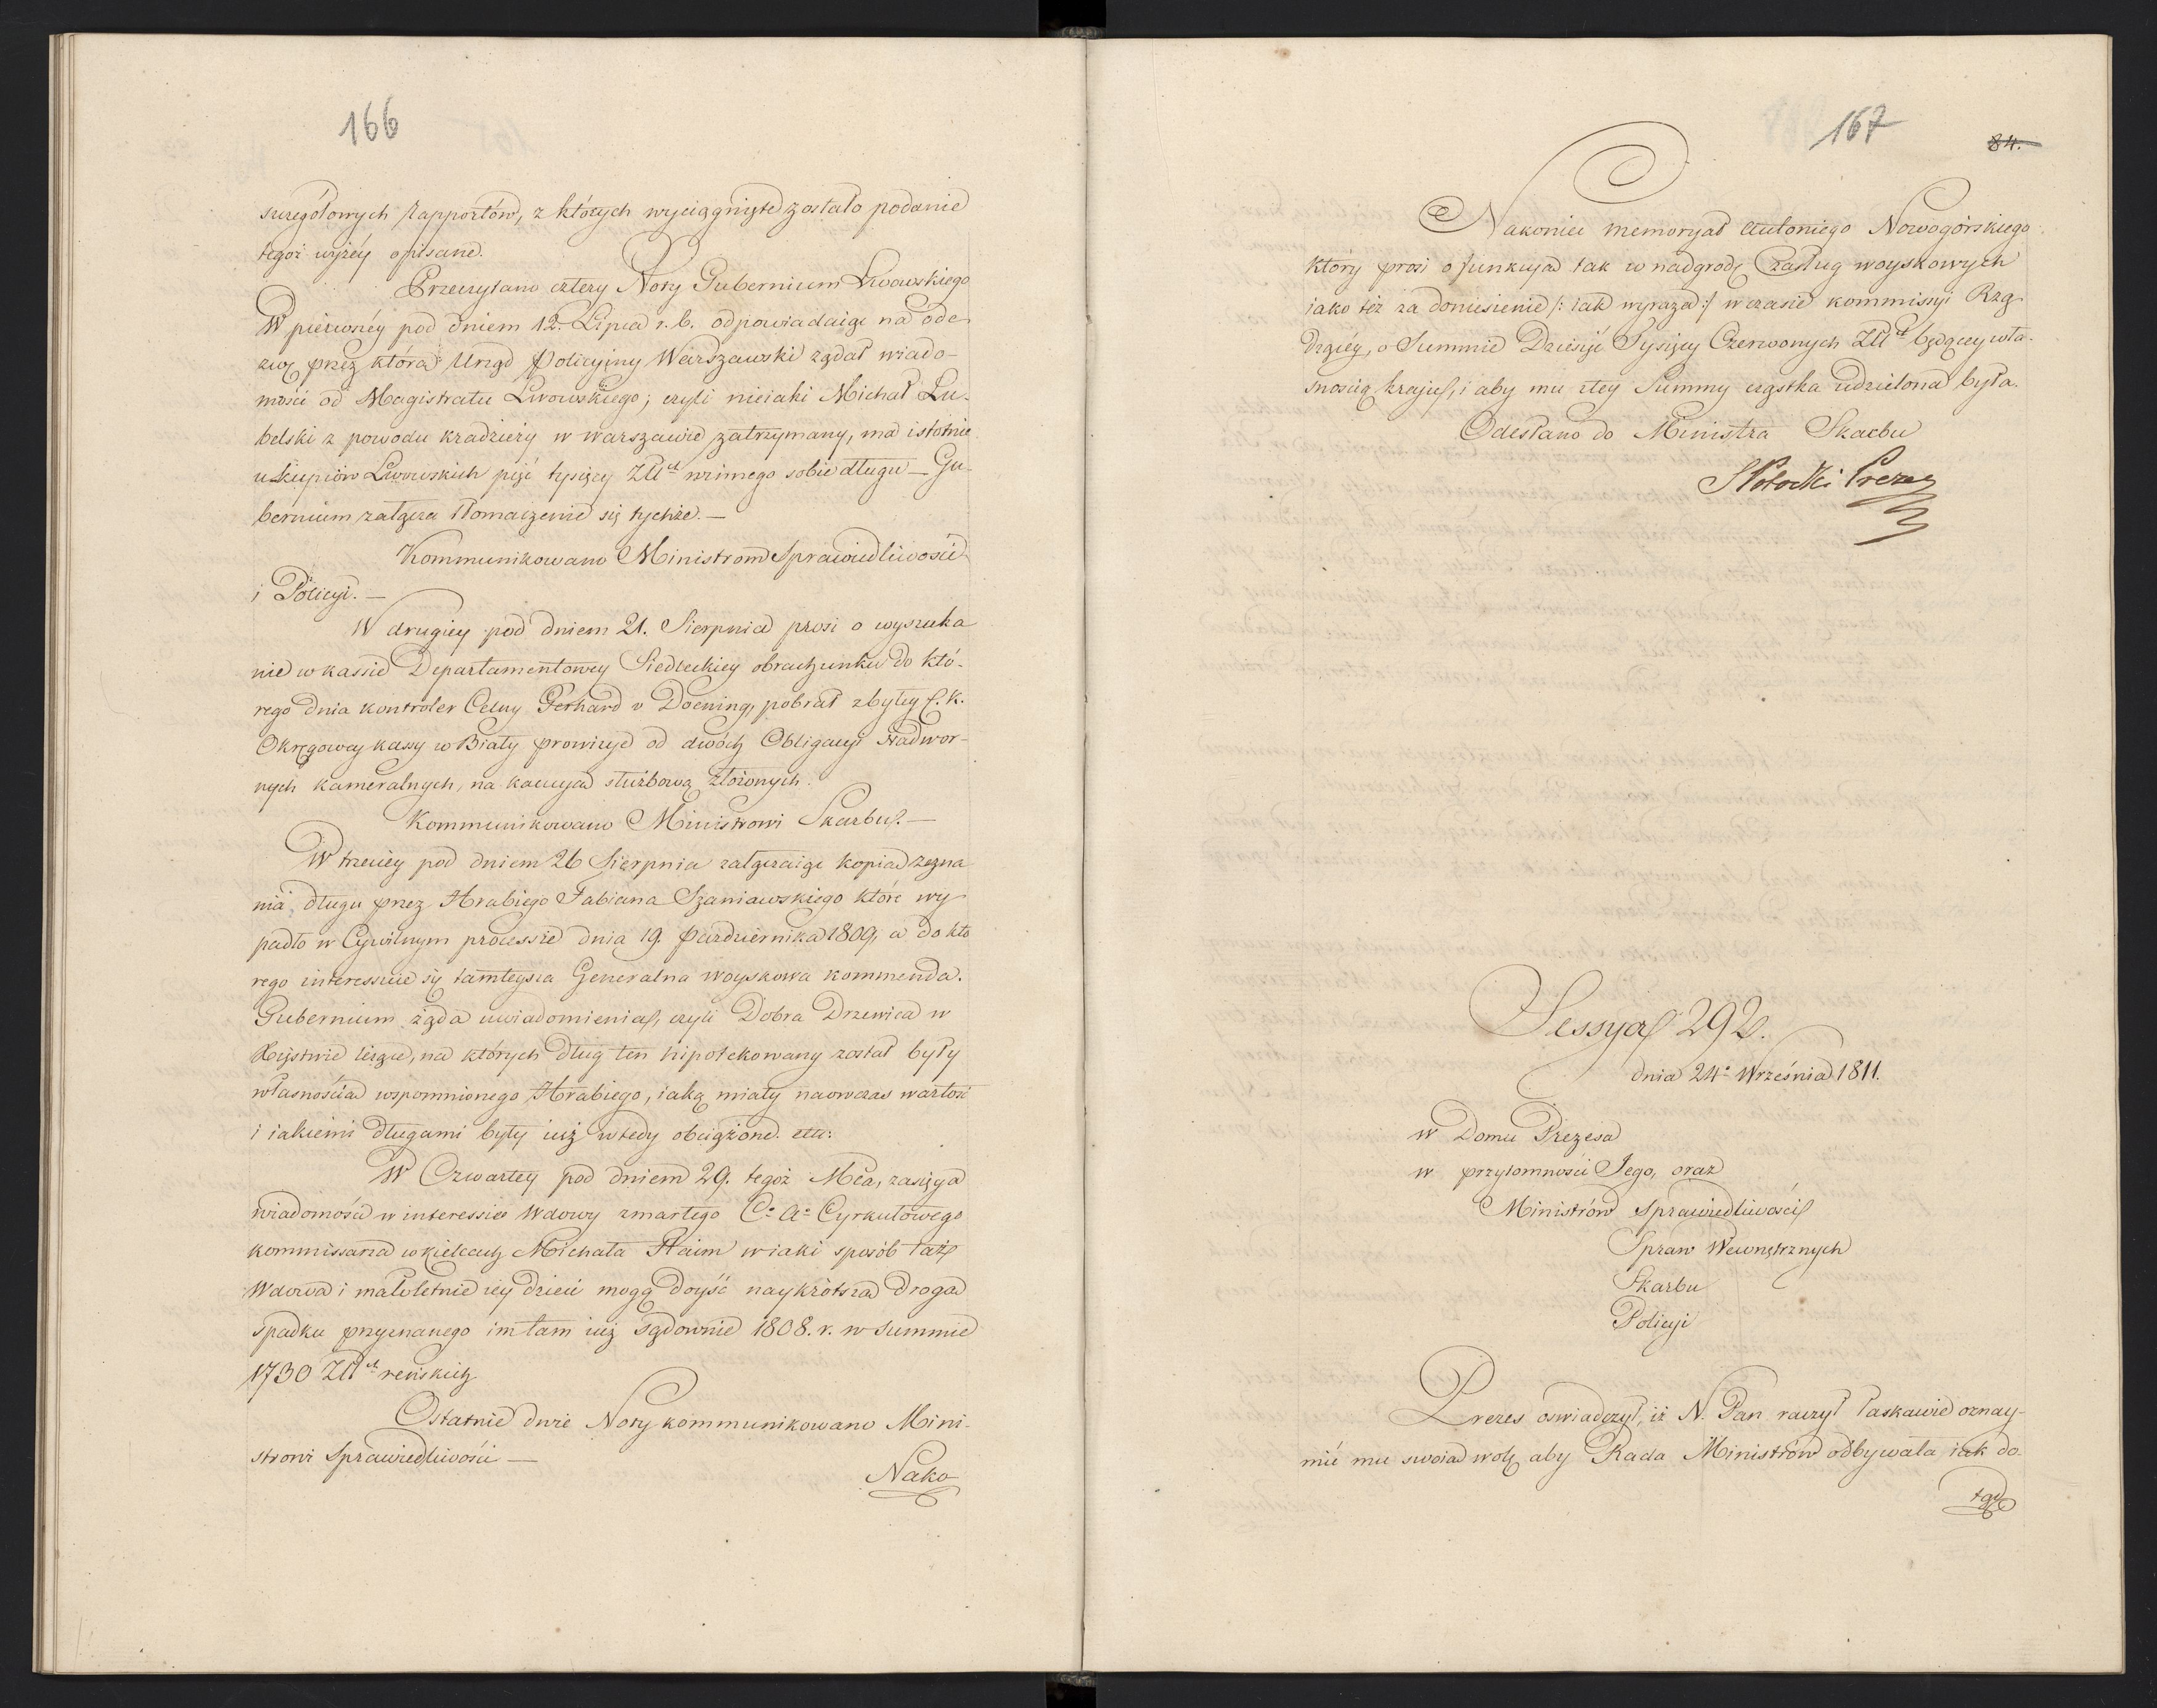 166
szczegółowych rapportów, z których wyciągnięte zostało podanie
tegoż wyżéy opisane.
Przeczytano cztery Noty Gubernium Lwowskiego
W pierwszéy pod dniem 12. Lipca r. b. odpowiadaiąc na ode-
zwę przez którą Urząd Policyjny Warszawski żądał wiado-
mości od Magistratu Lwowskiego; czyli nieiaki Michał Lu-
belski z powodu kradzieży w Warszawie zatrzymany, ma istotnie
u kupców Lwowskich pięć tysięcy Złł winnego sobie długu — Gu-
bernium załącza tłomaczenie się tychże. —
Kommunikowano Ministrom Sprawiedliwości
i Policyi. —
W drugiey pod dniem 21. Sierpnia prosi o wyszuka
nie w kassie Departamentowey Siedleckiey obrachunku do któ-
rego dnia kontroler Celny Gerhard v Doening, pobrał z byłey C. K.
Okręgowey kassy w Biały prowizyę od dwóch Obligacyi Nadwor-
nych kameralnych, na kaucyą służbową złożonych.
Kommunikowano Ministrowi Skarbu. —
W trzeciey pod dniem 26 Sierpnia załączaiąc kopią zezna
nia długu przez Hrabiego Fabiana Szaniawskiego które wy
padło w Cywilnym processie dnia 19. Października 1809, a do któ
rego interessuie się tamteysza Generalna woyskowa kommenda.
Gubernium żąda uwiadomienia, czyli Dobra Drzewica w
Xięstwie leżące, na których dług ten hipotekowany został były
własnością wspomnionego Hrabiego, iaką miały naowczas wartość
i iakiemi długami były iuż wtedy obciążone. etc:
W Czwartey pod dniem 29. tegoż Mca, zasięga
wiadomości w interessie Wdowy zmarłego C: A: Cyrkułowego
kommissarza w Kielcach Michała Plaim w iaki sposób taż
Wdowa i małoletnie iey dzieci mogą doyść naykrótszą drogą
spadku przyznanego im tam iuż sądownie 1808. r. w summie
1730 Złł reńskich
Ostatnie dwie Noty kommunikowano Mini-
strowi Sprawiedliwości —
Nako
167
84.
Nakoniec memoryał Antoniego Nowogórskiego
który prosi o funkcyą tak w nadgrodę zasług woyskowych
iako też za doniesienie /: iak wyraża :/ w czasie kommissyi Rzą-
dzącéy, o Summie Dziesięć Tysięcy Czerwonych Złł będącey wła-
snością kraju, i aby mu z tey Summy cząstka udzielona była.
Odesłano do Ministra Skarbu
S Potocki Prezes
Sessya 292.
dnia 24: Września 1811.
w Domu Prezesa
w przytomności Jego, oraz
Ministrów Sprawiedliwości
Spraw Wewnętrznych
Skarbu
Policyi
Prezes oświadczył, iż N. Pan raczył łaskawie oznay-
mić mu swoią wolę aby Rada Ministrów odbywała iak do-
tąd